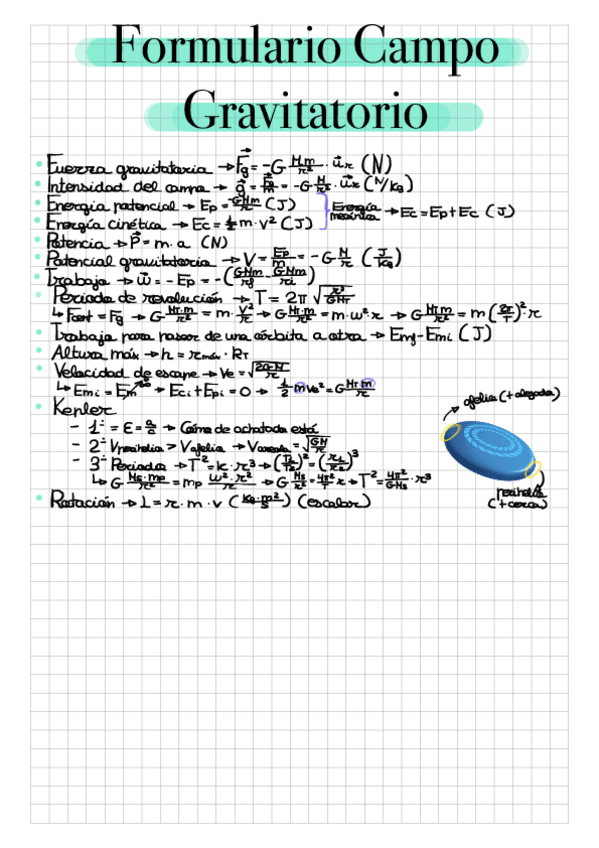 Formulario Campo
Gravitatorio
• Fuerza gravitatoria → F⃗g = -G M·m/r² · u⃗r (N)
• Intensidad del campo → g⃗ = F⃗/m = -G M/r² · u⃗r (N/Kg)
• Energía potencial → Ep = -G·M·m/r (J)
• Energía cinética → Ec = 1/2 m · v² (J)
Energía mecánica → Ec = Ep + Ec (J)
• Potencia → P⃗ = m · a (N)
• Potencial gravitatorio → V = Ep/m = -G · M/r (J/Kg)
• Trabajo → w⃗ = -Ep = -(GMm/rf - GMm/ri)
• Periodo de revolución → T = 2π √(r³/G·MT)
↳ Fcent = Fg → G MT·m/r² = m · v²/r → G MT·m/r² = m · w² r → G MT·m/r² = m (2π/T)² · r
• Trabajo para pasar de una órbita a otra → Emf - Emi (J)
• Altura máx → h = rmáx · RT
• Velocidad de escape → Ve = √(2G·M/r)
↳ Emi = Em∞ → Eci + Epi = 0 → 1/2 m ve² = G MT m/r
• Kepler
- 1ª = E = a/a → Cómo de achatada está
- 2ª Vperihelio > Vafelio → = √(GM/r)
- 3ª Periodo → T² = k · r³ → (T1/T2)² = (r1/r2)³
↳ G Ms·mp/r² = mp w²·r²/r → G Ms/r² = 4π²/T² r → T² = 4π²/G·Ms · r³
• Rotación → L = r · m · v (Kg·m²/s) (escalar)
afelio (+ alejado)
perihelio
(+ cerca)